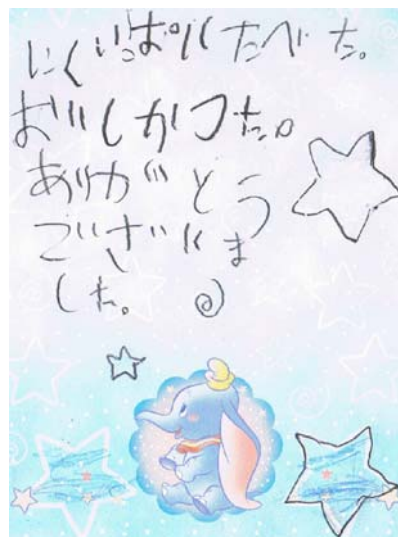 にくいっぱいたべた。
おいしかつた。
ありがとう
ございま
した。